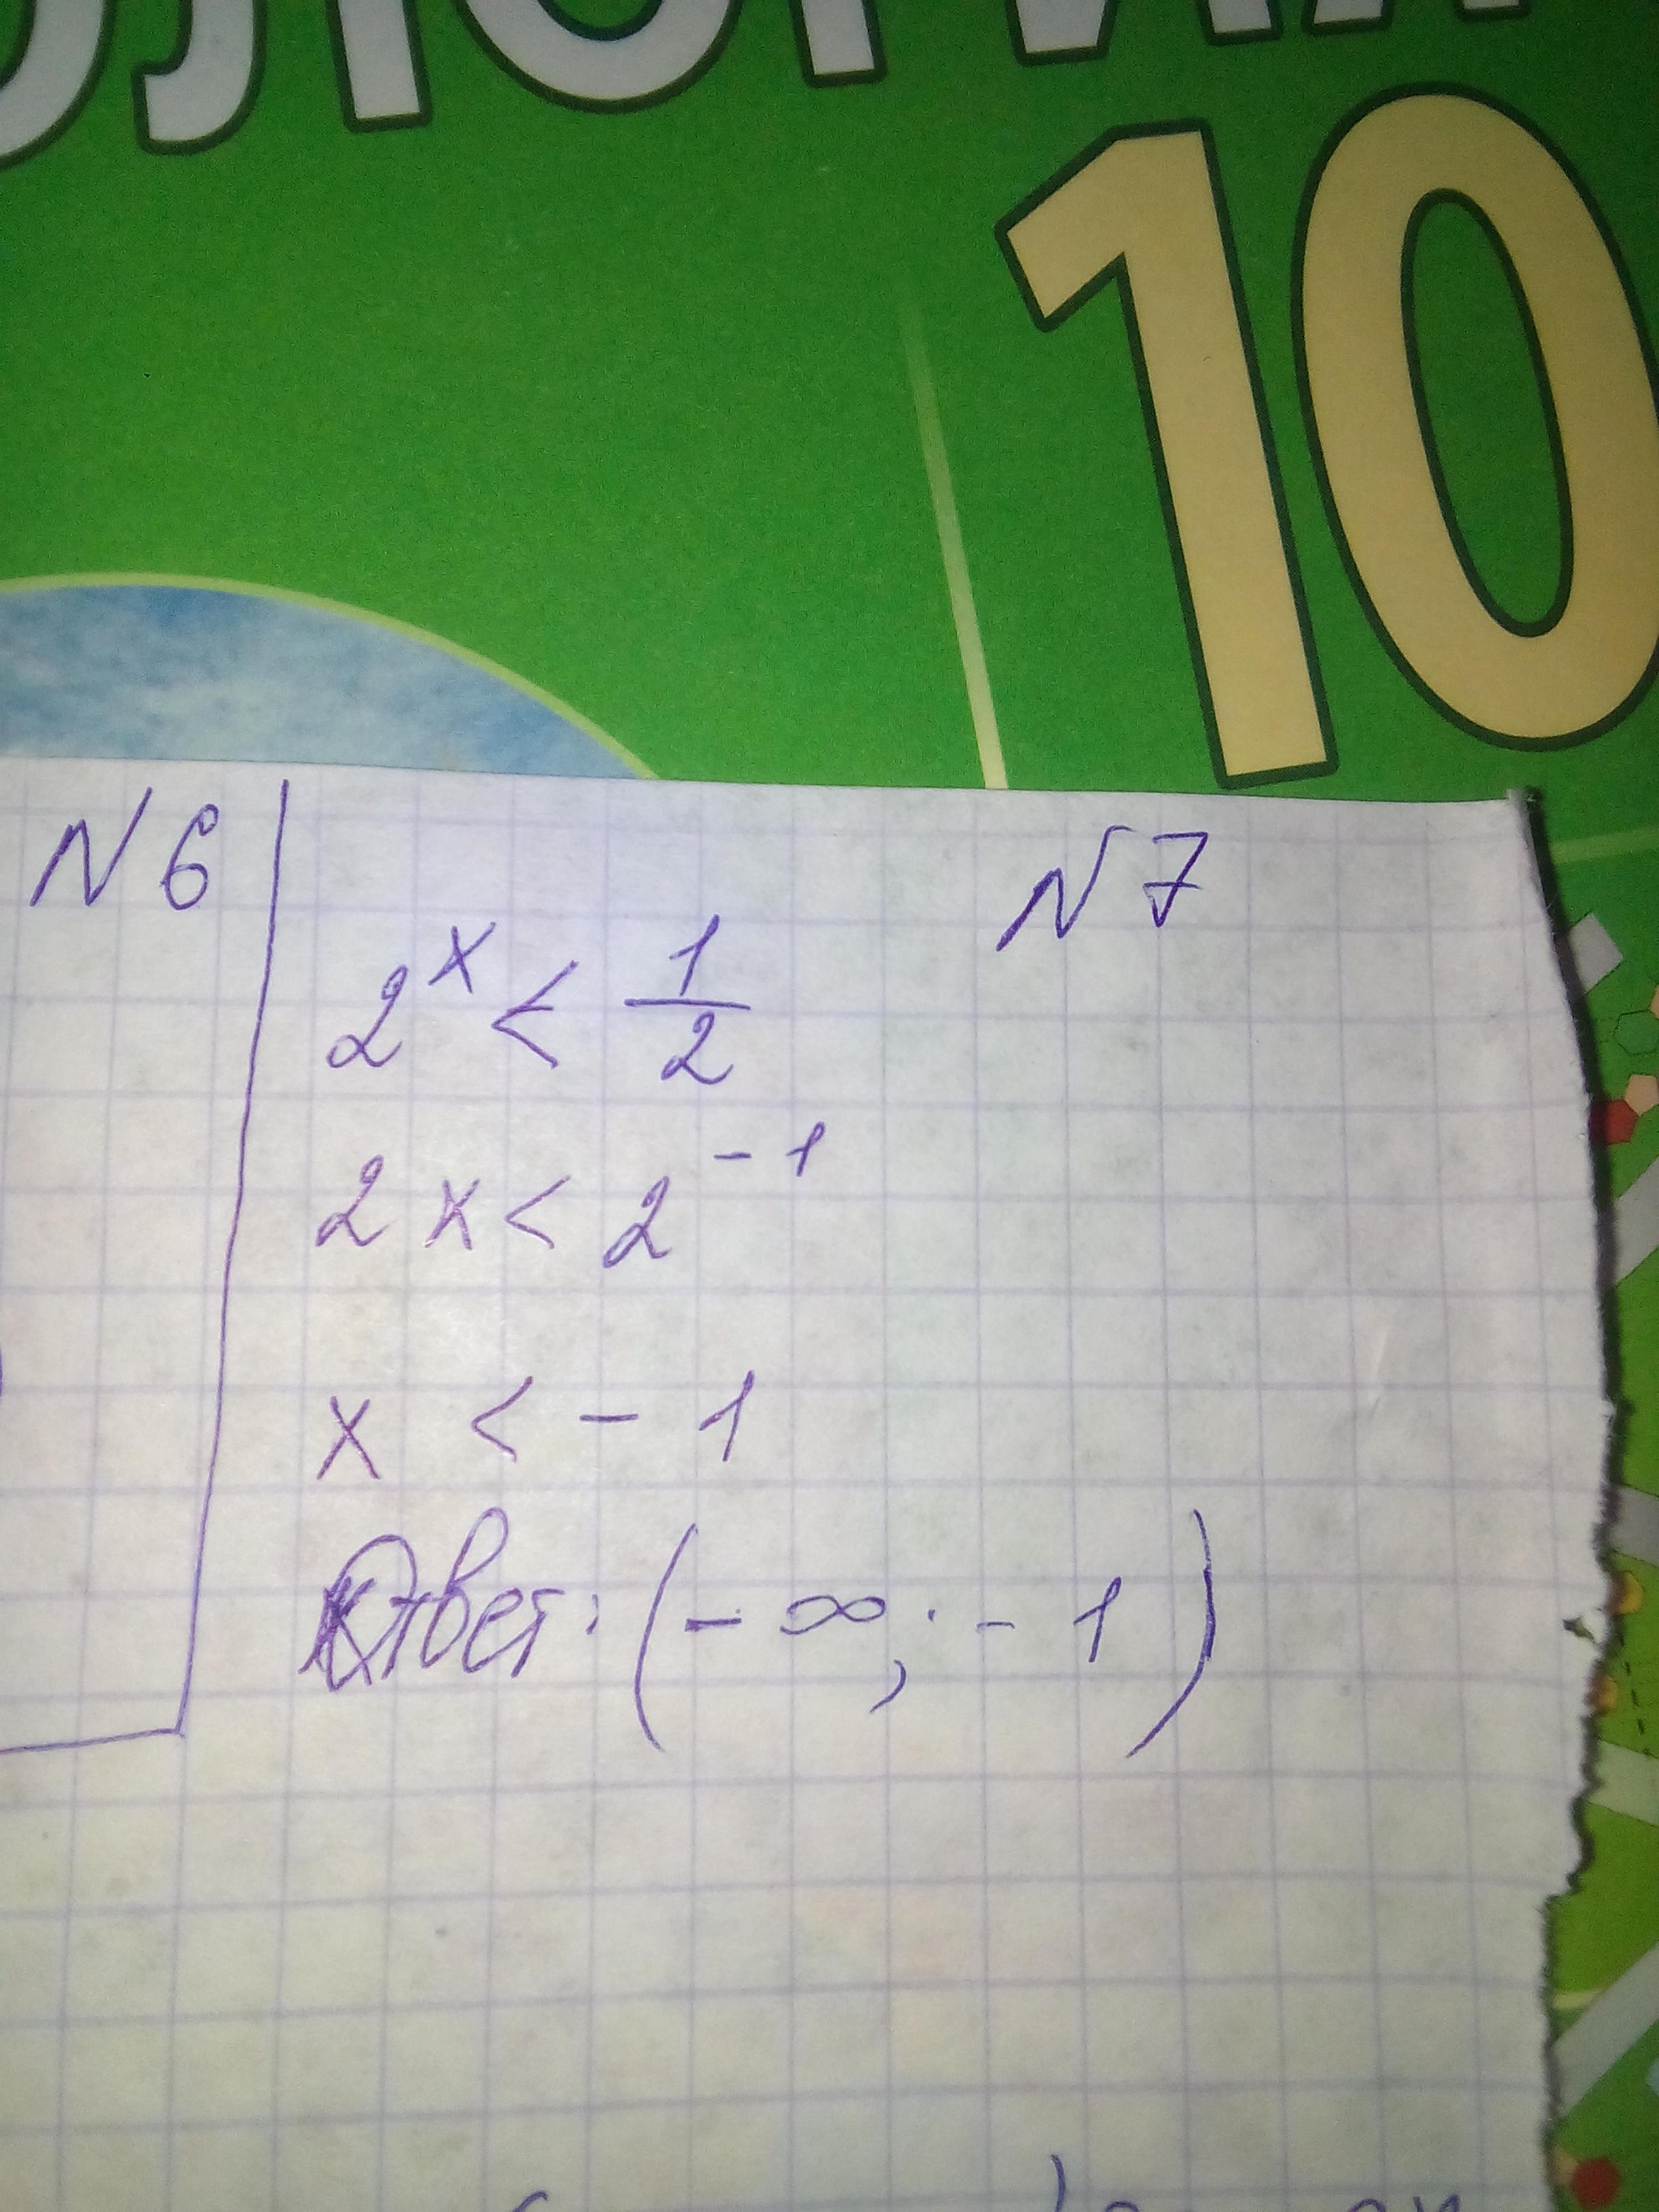 10
N 6
N 7
2^x < 1/2
2x < 2^-1
x < - 1
Ответ: (- ∞; - 1)